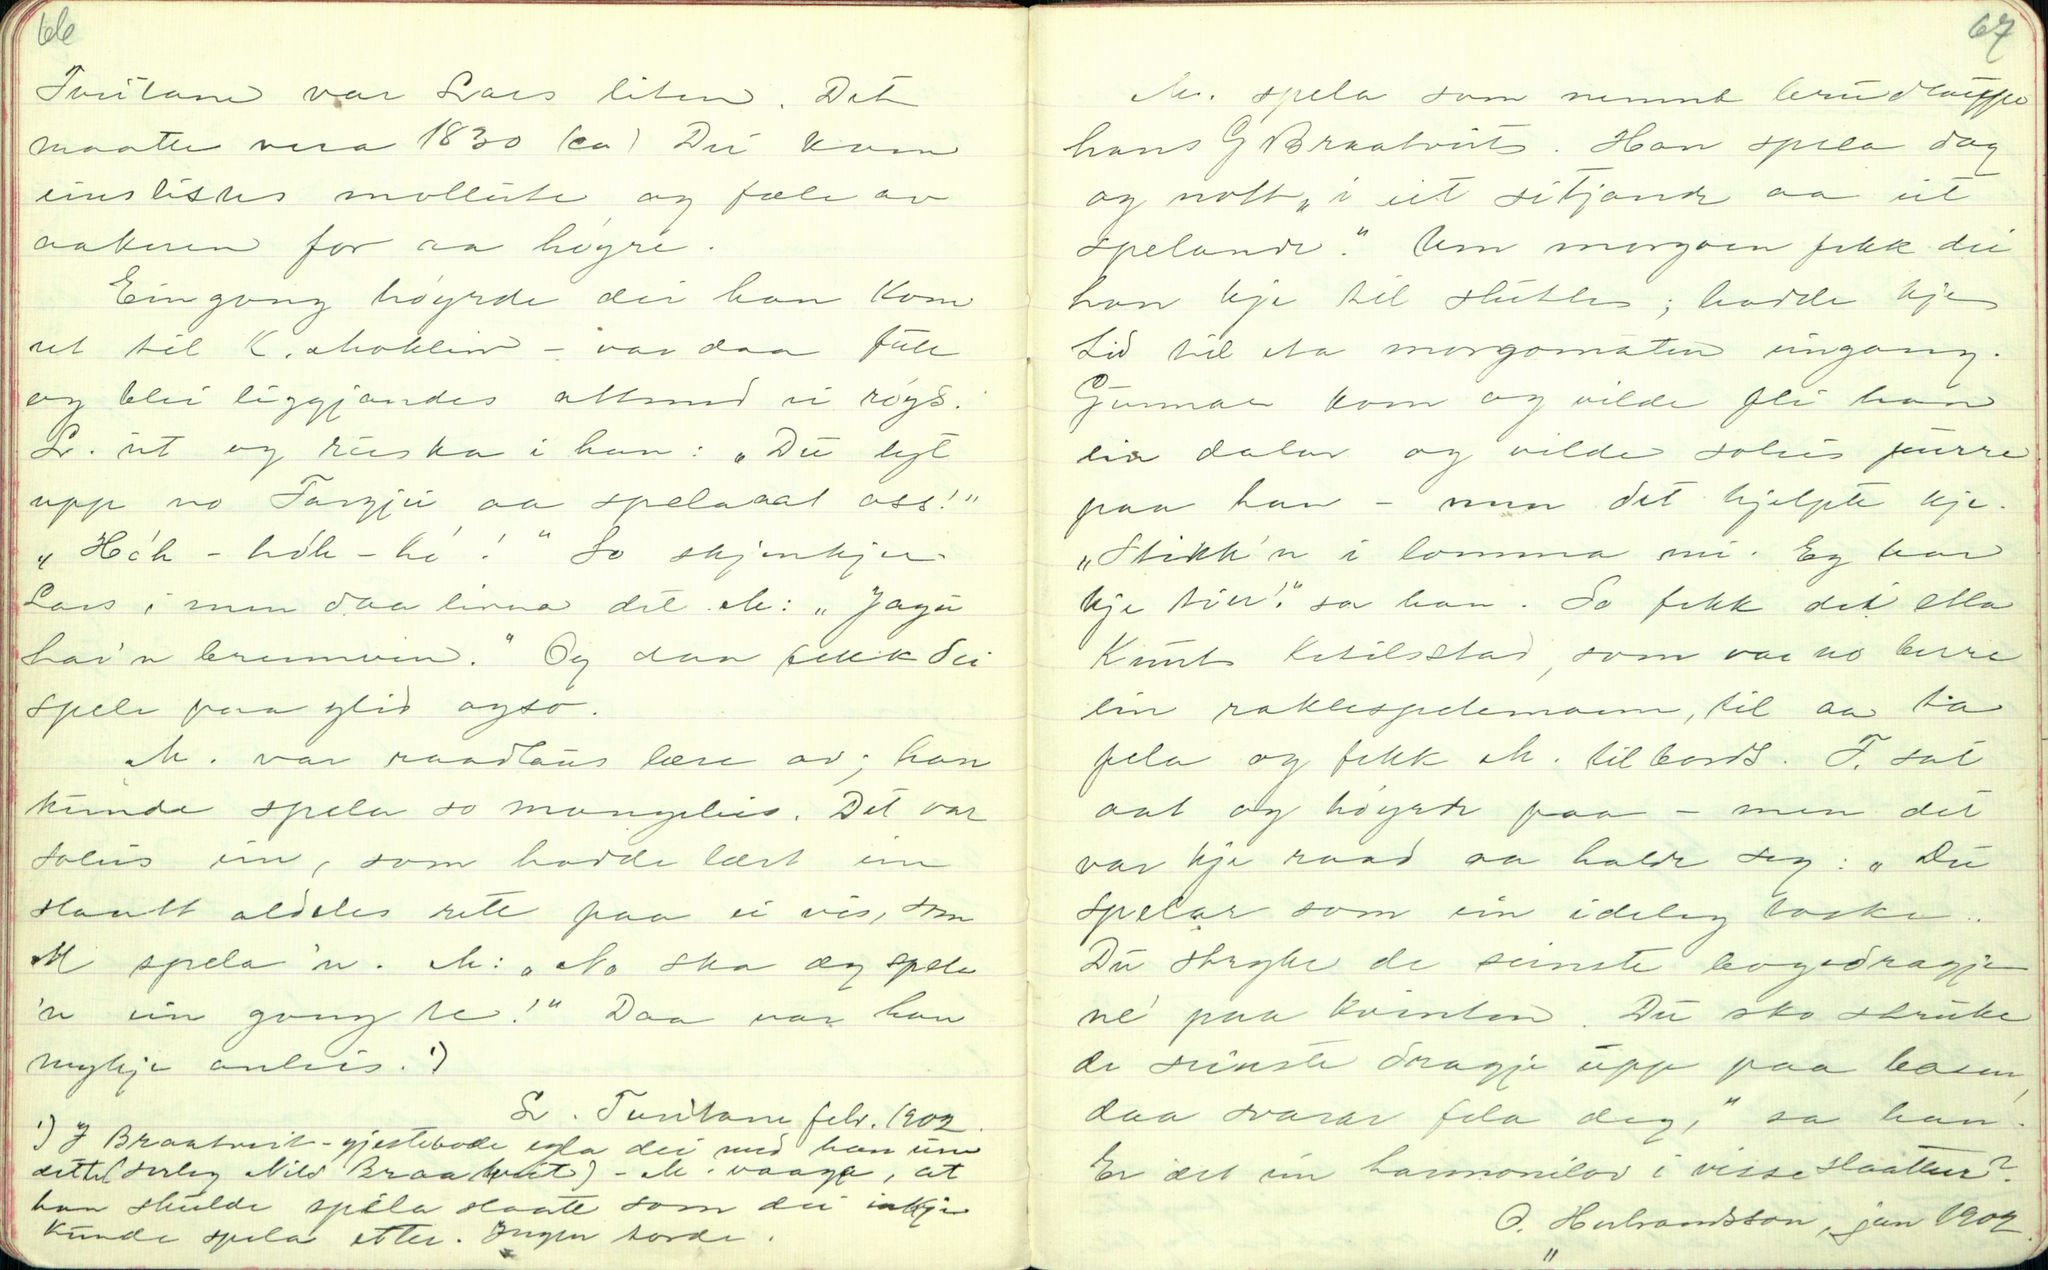 66
Turitane var Lars liten. Det
maatte vera 1830 (ca) Dei kom
einslishes mollute og fæle av
aakeren for aa høyre.
Ein gong høyrde dei han kom
ut til K. Moklein - var daa full
og blei liggjandes attmed ei røys.
L. ut og ruska i han: „Du lyt
upp no Targjei aa spela aat oss!"
„Hók - hók - hó!" So skjenkjer
Lars i men daa livna det M: „Jagu
har'n brennvin." Og daa fekk dei
spele paa glid ogso.
M. var raadlaus lære av; han
kunde spela so mangeleis. Det var
soleis ein, som hadde lært ein
slaatt aldeles rett paa ei vis, som
M spela 'n. M: „No ska æg spela
'n ein gong te!" Daa var han
mykje anleis. ¹)
L. Turitane febr. 1902.
¹) I Braatveit-gjestebode egla dei med han um
dette (serleg Nils Braatveit) - M. vaaga, at
han skulde spela slaatte som dei inkje
kunde spela etter. Ingen torde.
67
M. spela som nemnt brudlaupe
hans G Braatveit. Han spela dag
og nott „i eit sitjande aa eit
spelande." Um morgoen fekk dei
han kje til slutte; hadde kje
tid til eta morgomaten eingong.
Gunnar kom og vilde fli han
ein dalar og vilde soleis purre
paa han - men det hjelpte kje.
„Stikk'n i lomma mi. Eg har
kje tier." sa han. So fekk dei ella
Knut Ketilsstad, som var no berre
ein raklespelemann, til aa ta
fela og fekk M. til bords. T. sat
aat og høyrde paa - men det
var kje raad aa halde seg: „Du
spelar som ein ideleg taska..
Du stryke de seinste bogedragje
ne' paa kvinten. Du sko struke
de seinste dragje upp paa basen,
daa svarar fela deg," sa han.
Er det ein harmonilov i visse slaatter?
O. Herbrandsson, jan 1902.
"